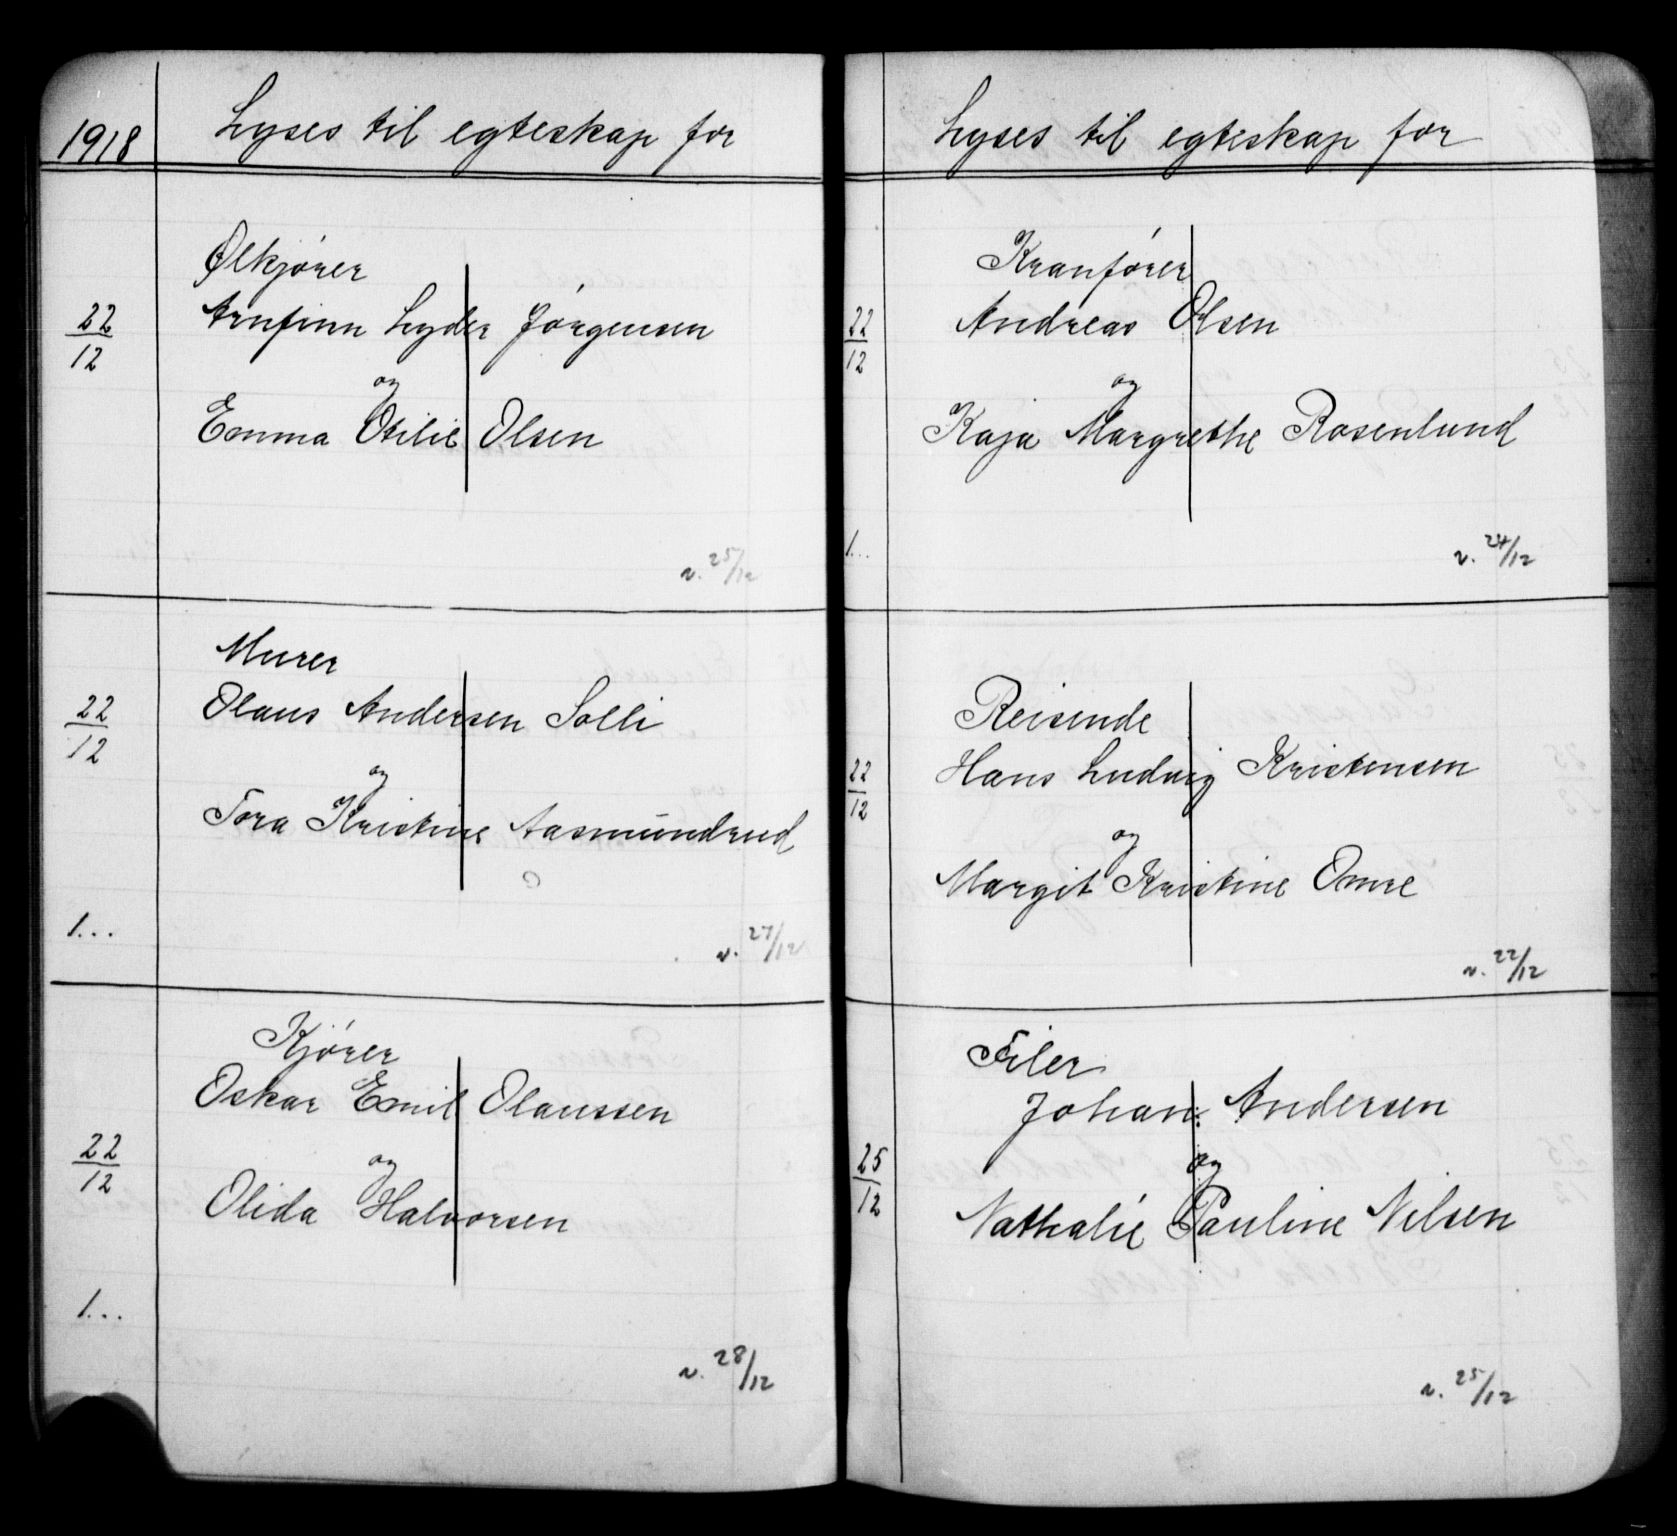 1918 Lyses til egteskap for
Ølkjører
22/12 Arnfinn Lyder Jørgensen
og
Emma Otilie Olsen
v. 25/12
Murer
22/12 Olaus Andersen Solli
og
Tora Kristine Aasmundrud
1...
v. 27/12
Kjører
Oskar Emil Olaussen
22/12 og
Olida Halvorsen
1...
v. 28/12
Lyses til egteskap for
Kranfører
22/12 Andreas Olsen
og
Kaja Margrethe Rosenlund
1...
v. 24/12
Reisende
22/12 Hans Ludvig Kristensen
og
Margit Kristine Omre
v. 22/12
Filer
Johan Andersen
25/12 og
Nathalie Pauline Nilsen
v. 25/12